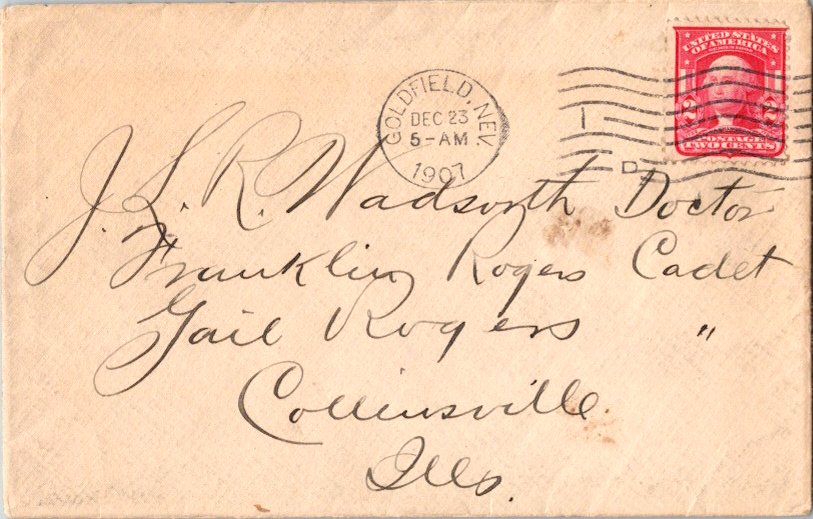 UNITED STATES
OF AMERICA
2 2
POSTAGE
TWO CENTS
GOLDFIELD, NEV.
DEC 23
5-AM
1907
1
D
J. L. R. Wadsworth Doctor
Franklin Rogers Cadet
Gail Rogers "
Collinsville
Ills.